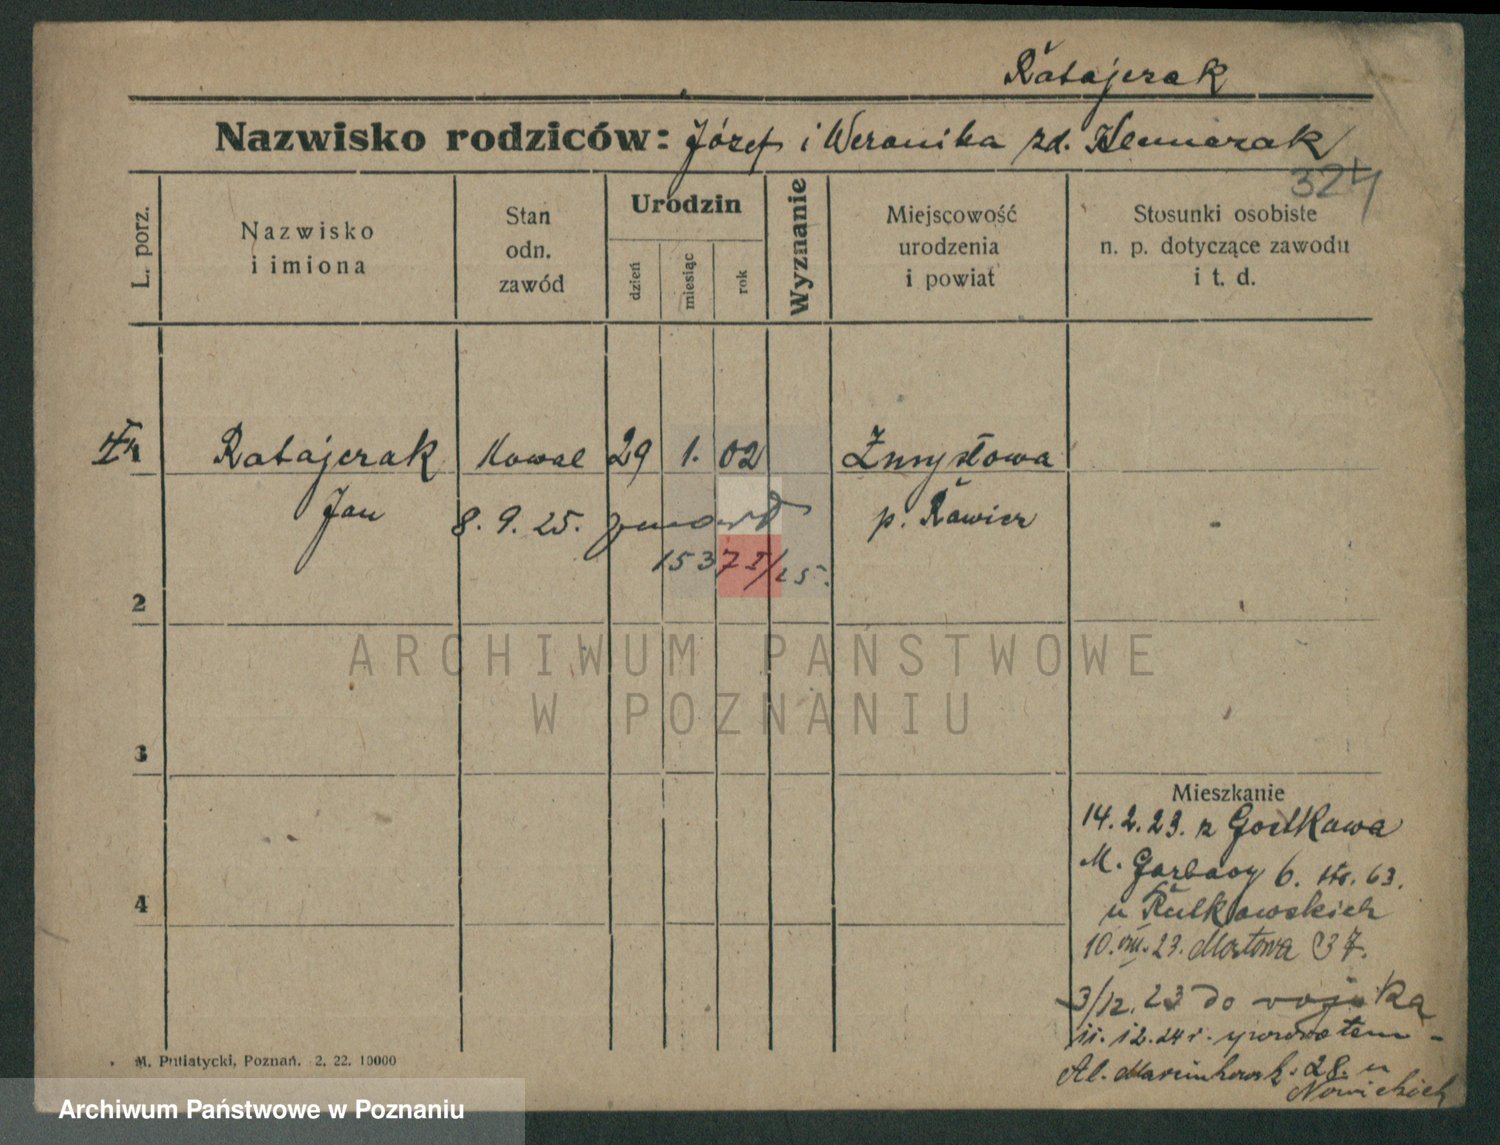 Ratajczak
Nazwisko rodziców: Józef i Weronika zd. Klemczak
324
L. porz.
Nazwisko
i imiona
Stan
odn.
zawód
Urodzin
dzień
miesiąc
rok
Wyznanie
Miejscowość
urodzenia
i powiat
Stosunki osobiste
n. p. dotyczące zawodu
i t. d.
Ratajczak Kowal 29 1. 02 Zmysłowa
Jan 8. 9. 25. zmarł p. Rawicz
1537 I/25.
2
3
4
ARCHIWUM PAŃSTWOWE
W POZNANIU
Mieszkanie
14. 2. 23. z Gostkowa
M. Garbary 6. str. 63.
u Rulkowskich
10. VIII. 23. Mostowa 37.
3/12. 23 do wojska
11. 12. 24 r. powrotem -
Al. Marcinkowsk. 28. u
Nowickich
M. Putiatycki, Poznań. 2. 22. 10000
Archiwum Państwowe w Poznaniu